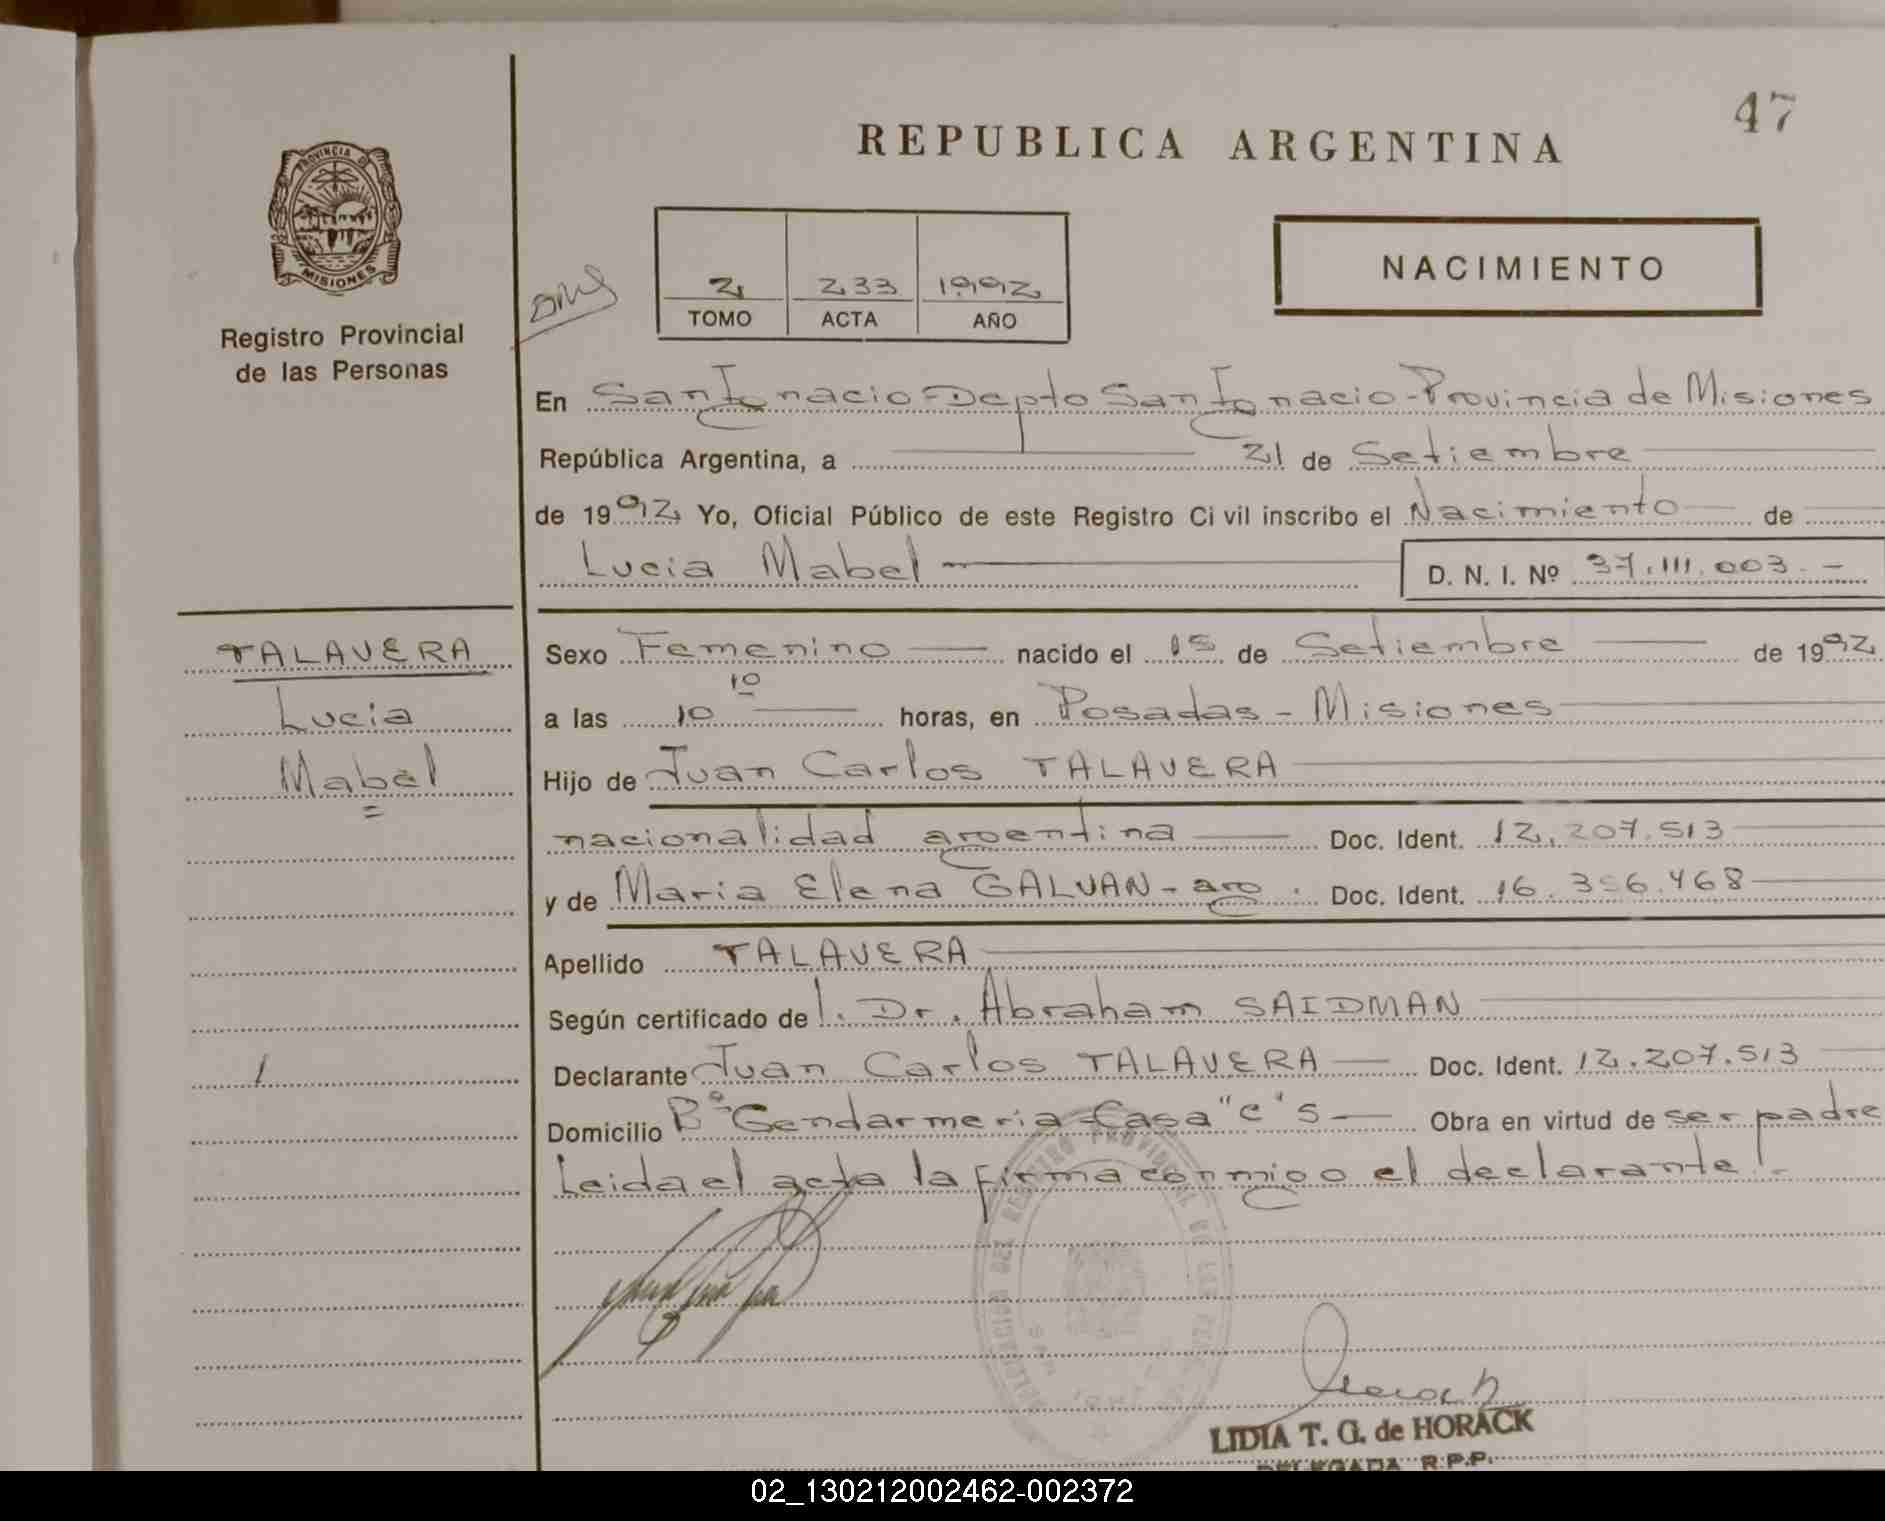 47
REPUBLICA ARGENTINA
PROVINCIA DE
MISIONES
Registro Provincial
de las Personas
2 233 1992
TOMO ACTA AÑO
NACIMIENTO
En San Ignacio-Depto San Ignacio-Provincia de Misiones
República Argentina, a 21 de Setiembre
de 1992 Yo, Oficial Público de este Registro Civil inscribo el Nacimiento de
Lucia Mabel D. N. I. Nº 37.111.003.-
TALAVERA
Lucia
Mabel
Sexo Femenino nacido el 15 de Setiembre de 1992
a las 10 10 horas, en Posadas - Misiones
Hijo de Juan Carlos TALAVERA
nacionalidad argentina Doc. Ident. 12.207.513
y de Maria Elena GALVAN - arg. Doc. Ident. 16.356.468
Apellido TALAVERA
Según certificado de l. Dr. Abraham SAIDMAN
Declarante Juan Carlos TALAVERA Doc. Ident. 12.207.513
Domicilio Bº Gendarmeria-Casa "C" 5 Obra en virtud de ser padre
Leida el acta la firma conmigo el declarante!-
DELEGACION DEL REGISTRO PROVINCIAL DE LAS PERSONAS
LIDIA T. G. de HORACK
DELEGADA R.P.P.
02_130212002462-002372